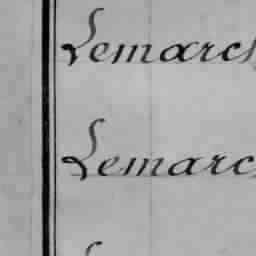 Lemarch
Lemarc